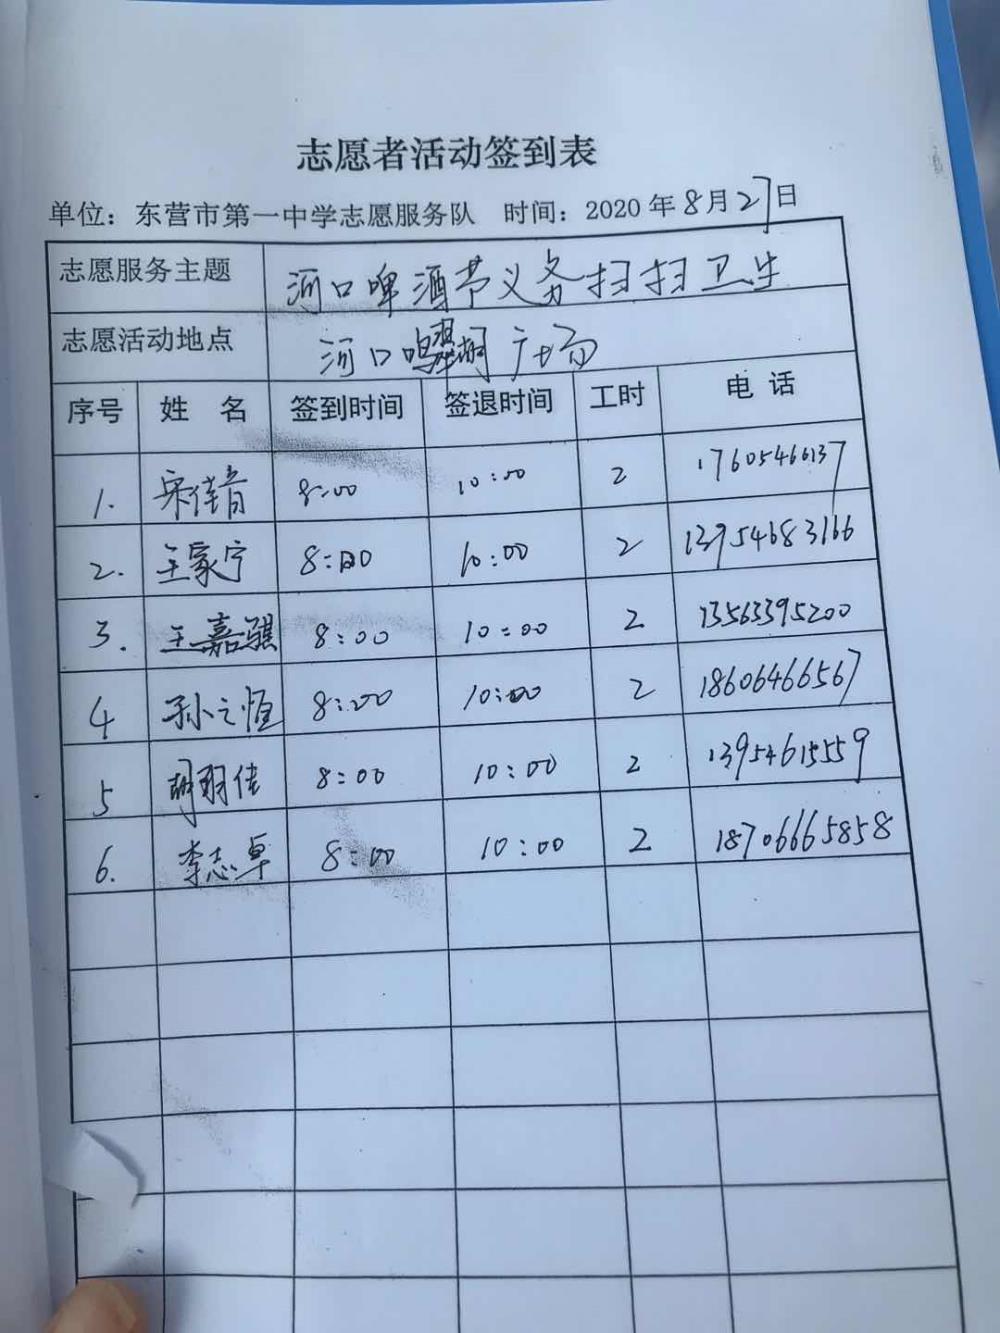 志愿者活动签到表
单位：东营市第一中学志愿服务队 时间：2020年8月27日
志愿服务主题 河口啤酒节义务扫扫卫生
志愿活动地点 河口鸣翠湖广场
序号 姓 名 签到时间 签退时间 工时 电 话
1. 宋佳音 8:00 10:00 2 17605466137
2. 王家宁 8:00 10:00 2 13954683166
3. 王嘉骐 8:00 10:00 2 13563395200
4 孙之恒 8:00 10:00 2 18606466567
5 胡羽佳 8:00 10:00 2 13954615559
6. 李志卓 8:00 10:00 2 18706665858